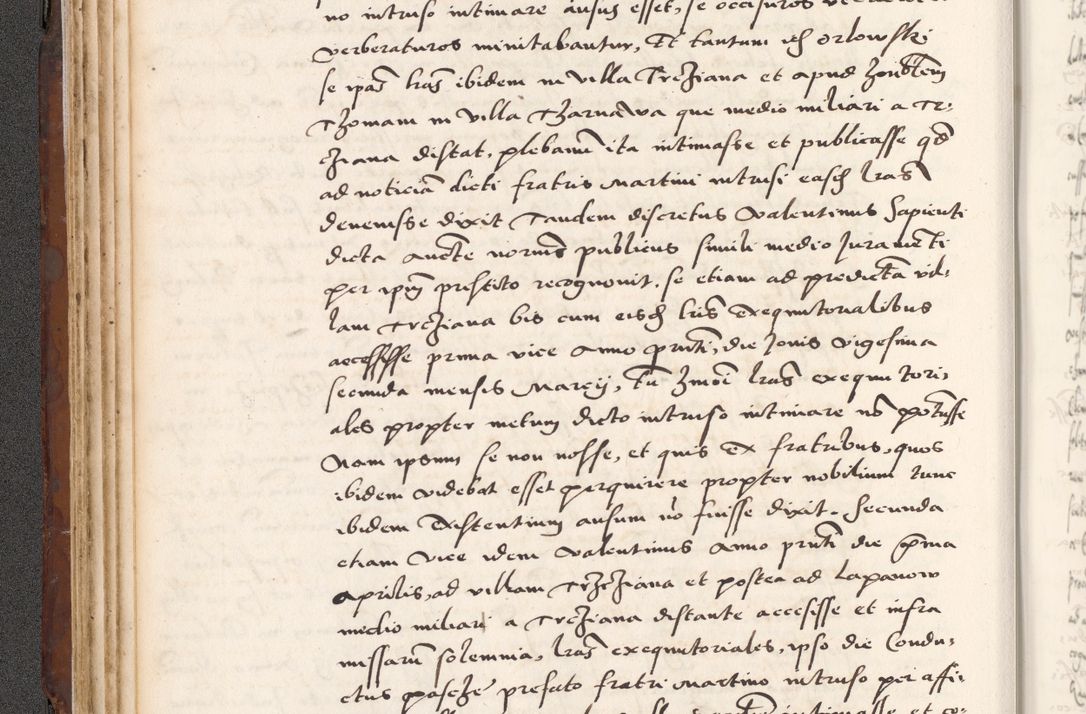 no intruso intimare ausus esset, se occisuros
verberaturos minitabantur, Et tantum ids Orlowski
se ipas lras ibidem in villa Trcziana et apud
Thomam in villa Czarnawa que medio miliari a Tr-
cziana distat, plebanum ita intimasse et publicasse qd
ad noticiam dicti fratris Martini intrusi easdem lras
devenisse dixit Tandem discretus Valentinus Sapienti
dicta aucte notarius publicus simili medio Juramenti
per ipm prestito recognovit, se etiam ad predictam vil-
lam Trcziana bis cum eisdem lris Exequutorialibus
accessisse prima vice Anno prnti, die Jovis vigesima
secunda mensis Marcij, tum lras exequutori-
ales propter metum dicto intruso intimare no potuisse
Nam ipsum se non nosse, et quis Ex fratribus, quos
ibidem videbat esset perquirere propter nobilium tunc
ibidem Existentium ausum no fuisse dixit. Secunda
etiam vice idem Valentinus Anno prnti die prima
Aprilis, ad villam Trzcziana et postea ad Lapanow
medio miliari a Trcziana distante accesisse et infra
missarum solemnia, lras exequutoriales, ipso die Condu-
ctus pasche prefato fratri Martino intruso per affi-
intimasse et